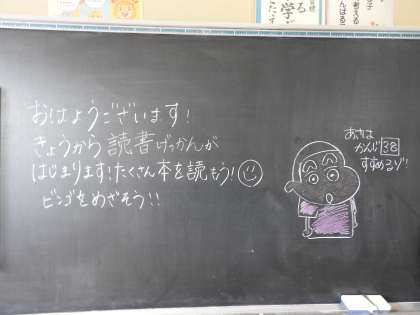 おはようございます!
きょうから読書げっかんが
はじまります!たくさん本を読もう!
ビンゴをめざそう!!
あさは
かんじ38
すすめるゾ!